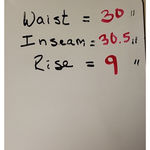 Waist = 30"
Inseam = 30.5"
Rise = 9"